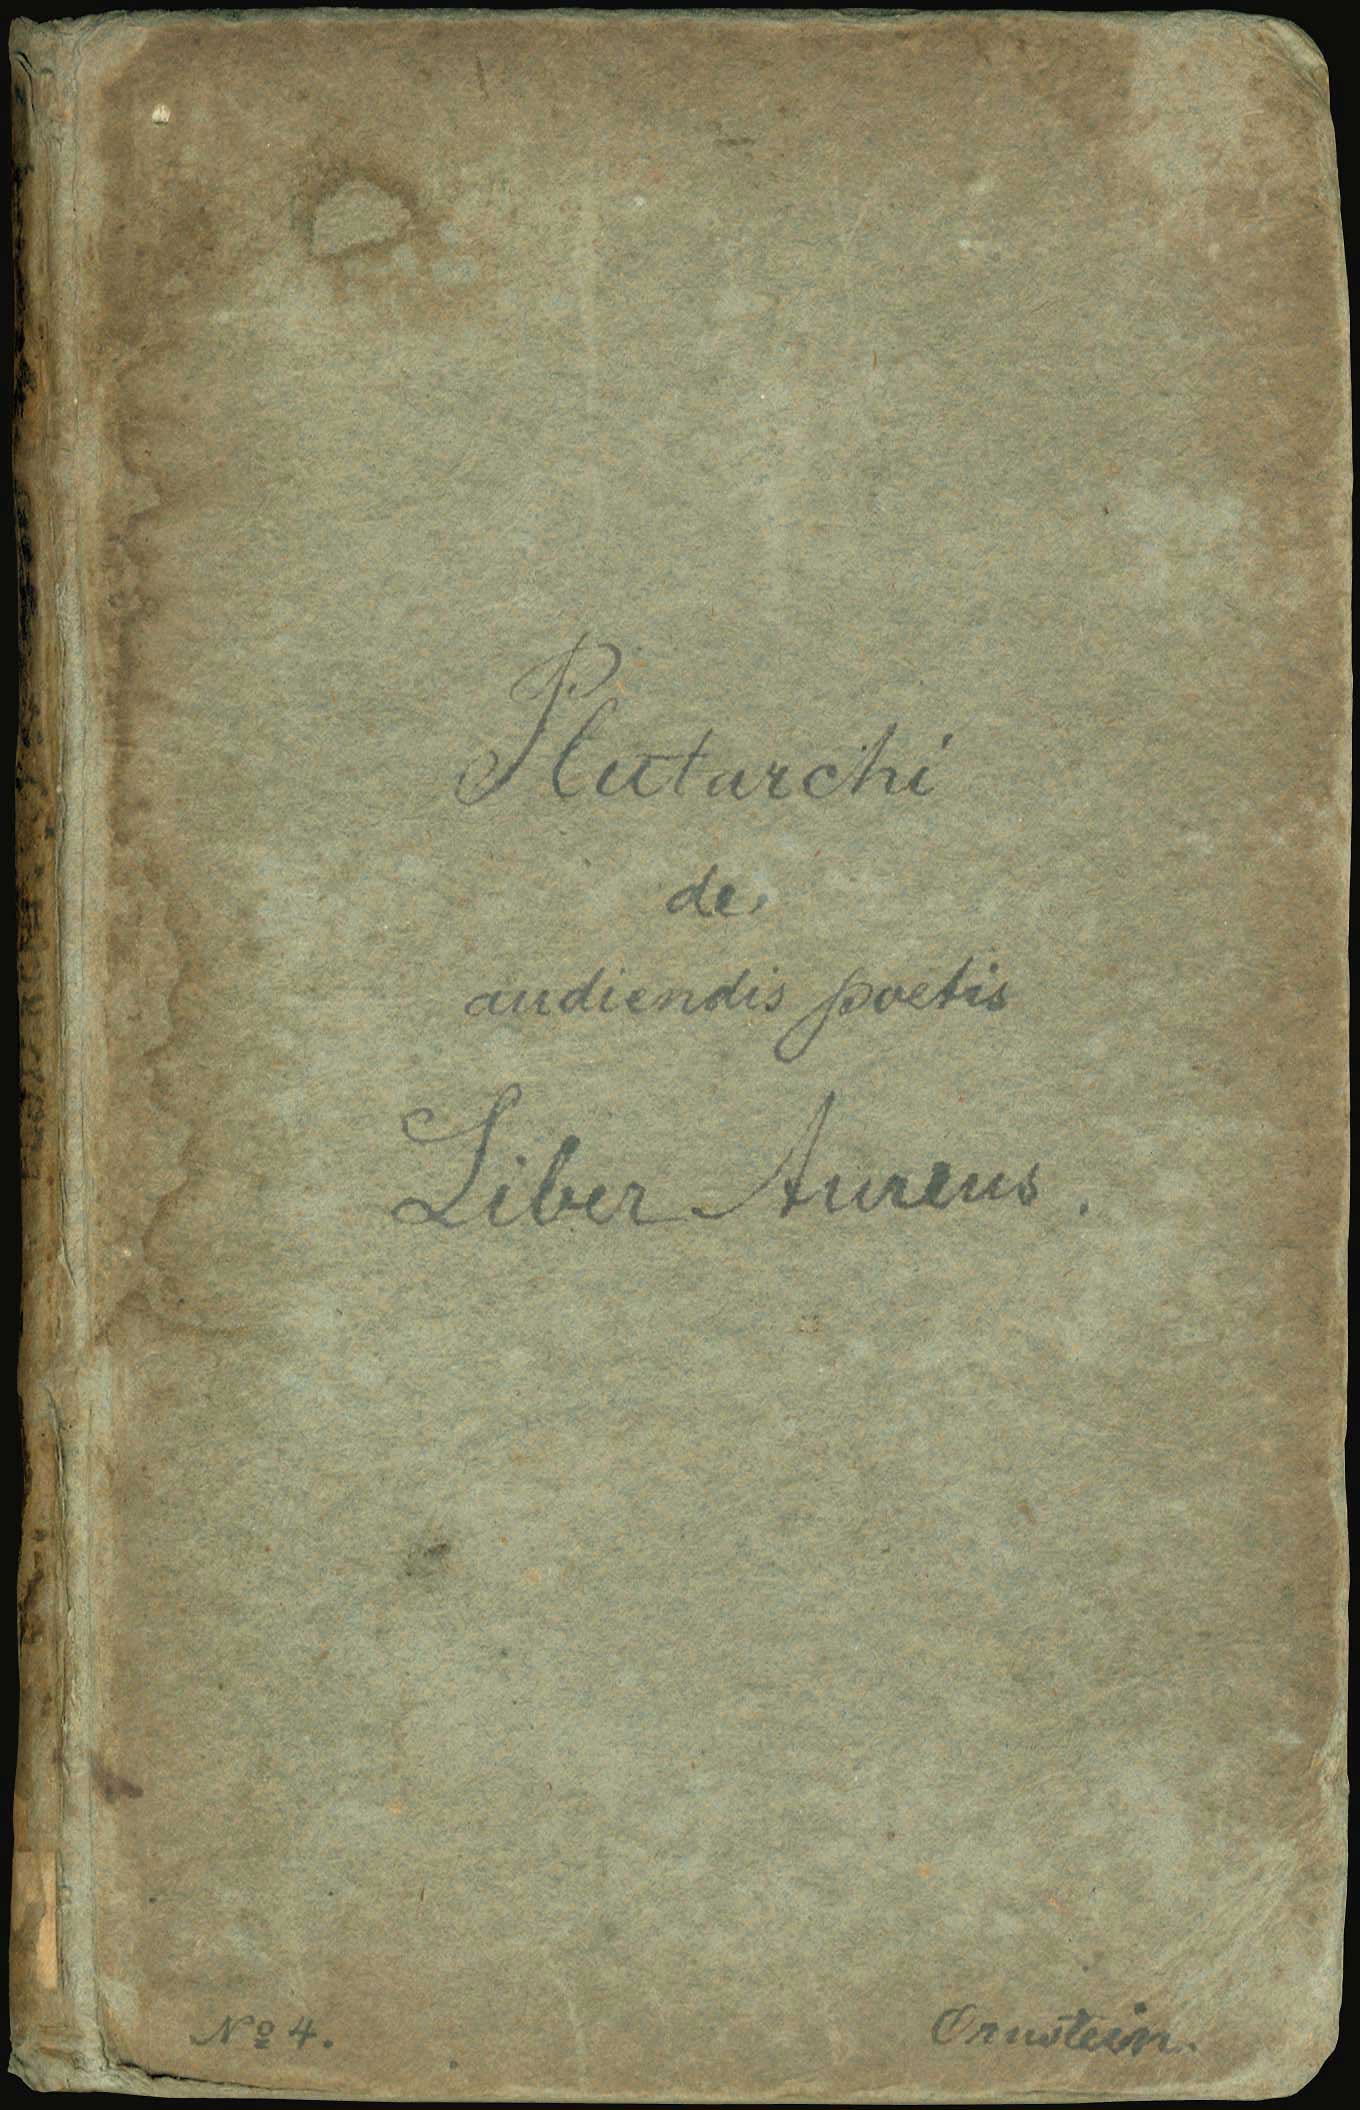 Plutarchi
de
audiendis poetis
Liber Aureus.
Nº 4.
Ornstein.